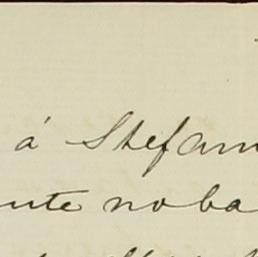 á Stefan
nte noba